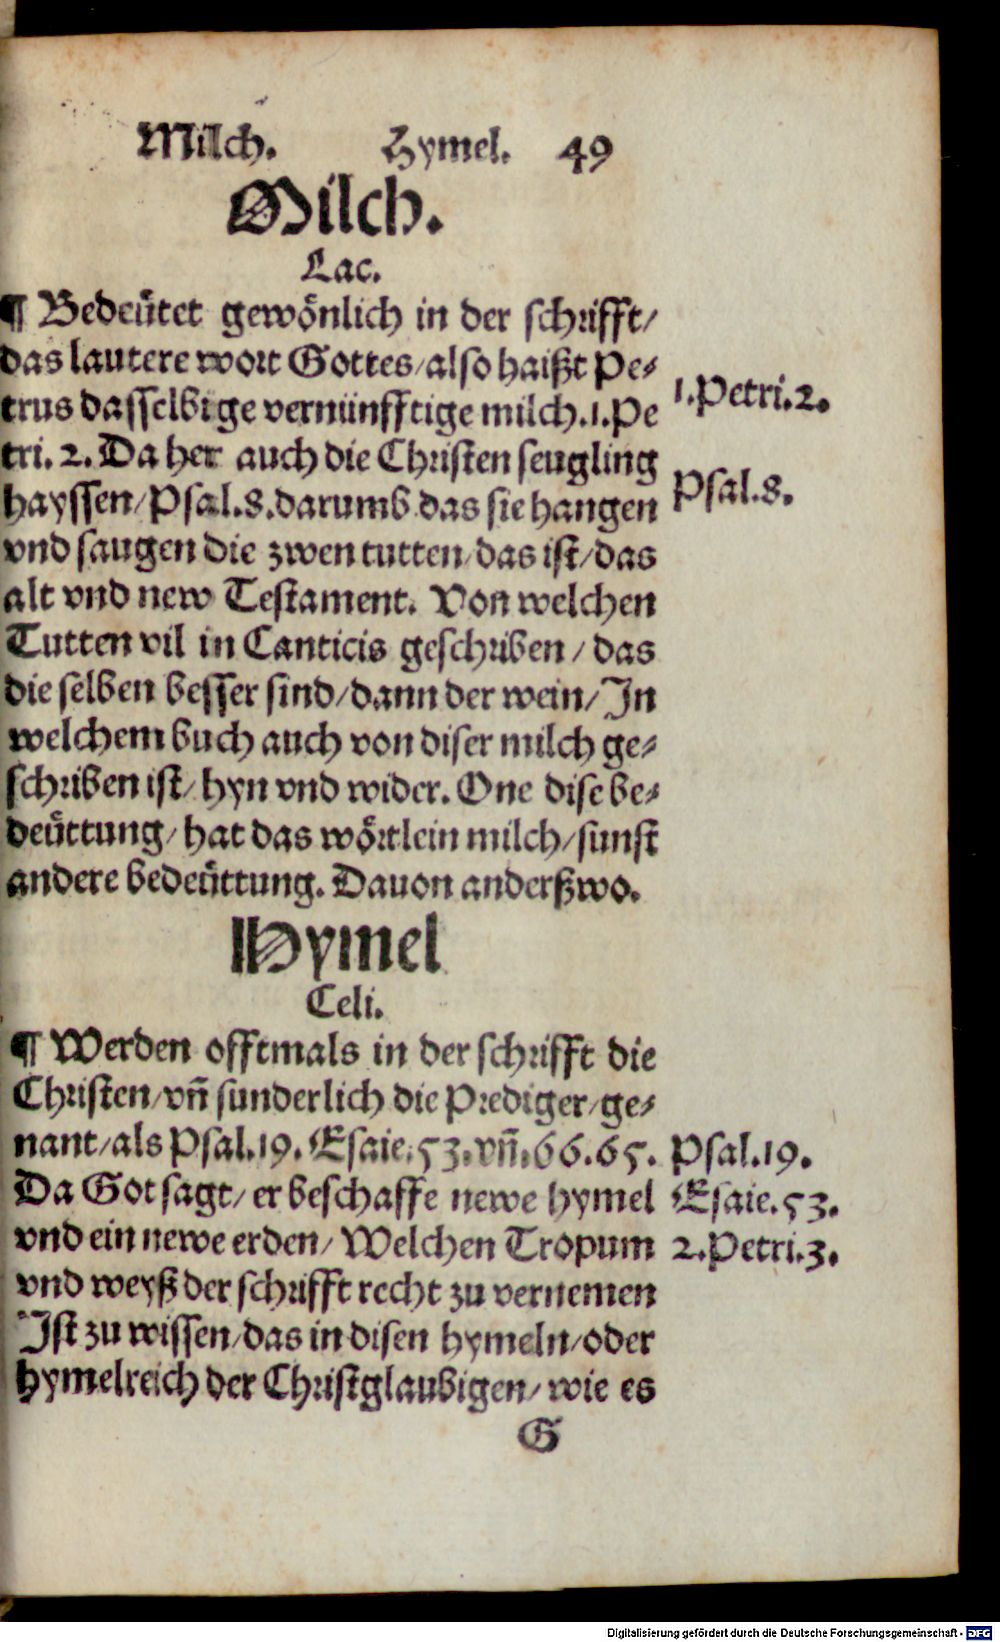 Milch. Hymel. 49
Milch.
Lac.
¶ Bedeütet gewönlich in der schrifft/
das lautere wort Gottes/also haißt Pe⸗
trus dasselbige vernünfftige milch.1.Pe
tri. 2. Da her auch die Christen seugling
hayssen/Psal.8.darumb das sie hangen
vnd saugen die zwen tutten/das ist/das
alt vnd new Testament. Von welchen
Tutten vil in Canticis geschriben/das
die selben besser sind/dann der wein/In
welchem buch auch von diser milch ge⸗
schriben ist/hyn vnd wider. One dise be⸗
deüttung/hat das wörtlein milch/sunst
andere bedeüttung. Dauon anderßwo.
1.Petri.2.
Psal.8.
Hymel
Celi.
¶ Werden offtmals in der schrifft die
Christen/vñ sunderlich die Prediger/ge⸗
nant/als Psal.19. Esaie.53.vñ.66.65.
Da Got sagt/er beschaffe newe hymel
vnd ein newe erden/Welchen Tropum
vnd weyß der schrifft recht zu vernemen
Ist zu wissen/das in disen hymeln/oder
hymelreich der Christglaubigen/wie es
Psal.19.
Esaie.53.
2.Petri.3.
G
Digitalisierung gefördert durch die Deutsche Forschungsgemeinschaft - DFG